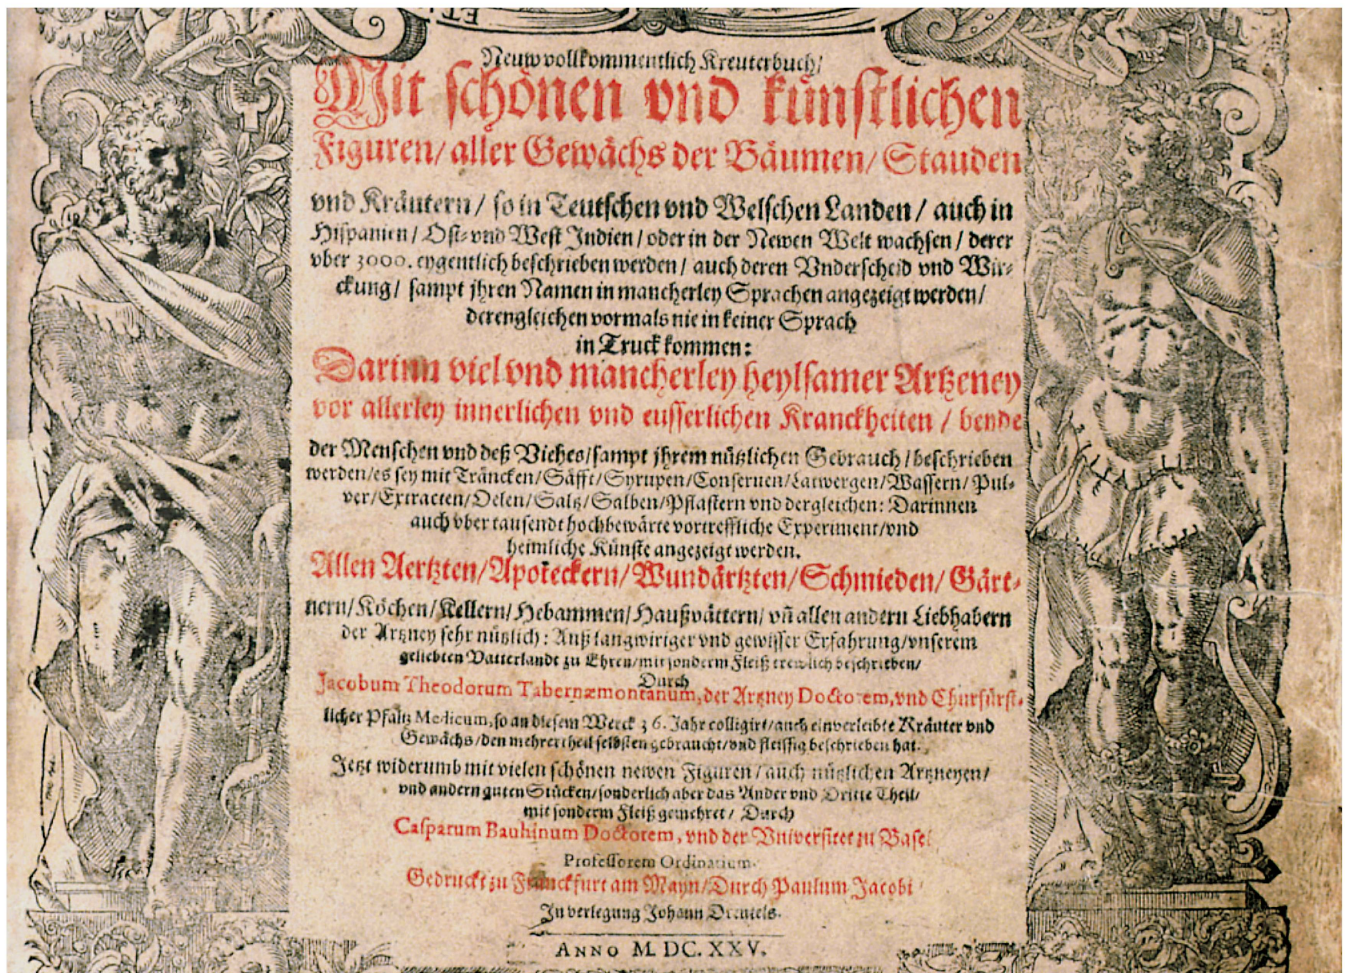 Neuw vollkommentlich Kreuterbuch/
Mit schönen vnd künstlichen
Figuren/ aller Gewächs der Bäumen/ Stauden
vnd Kräutern/ so in Teutschen vnd Welschen Landen/ auch in
Hispanien/ Ost- vnd West Indien/ oder in der Newen Welt wachsen/ derer
vber 3000. eygentlich beschrieben werden/ auch deren Vnderscheid vnd Wir-
ckung/ sampt jhren Namen in mancherley Sprachen angezeigt werden/
derengleichen vormals nie in keiner Sprach
in Truck kommen:
Darinn viel vnd mancherley heylsamer Artzeney
vor allerley innerlichen vnd eusserlichen Kranckheiten/ beyde
der Menschen vnd deß Viehes/ sampt jhrem nützlichen Gebrauch/ beschrieben
werden/ es sey mit Träncken/ Säfft/ Syrupen/ Conseruen/ Latwergen/ Wassern/ Pul-
ver/ Extracten/ Oelen/ Saltz/ Salben/ Pflastern vnd dergleichen: Darinnen
auch vber tausendt hochbewärte vortreffliche Experiment/ vnd
heimliche Künste angezeigt werden.
Allen Aertzten/ Apoteckern/ Wundärtzten/ Schmieden/ Gärt-
nern/ Köchen/ Kellern/ Hebammen/ Haußvättern/ vñ allen andern Liebhabern
der Artzney sehr nützlich: Auß langwiriger vnd gewisser Erfahrung/ vnserem
geliebten Vatterlandt zu Ehren/ mit sonderm Fleiß trewlich beschrieben/
Durch
Jacobum Theodorum Tabernæmontanum, der Artzney Doctorem, vnd Churfürst-
licher Pfaltz Medicum, so an diesem Werck 36. Jahr colligirt/ auch einverleibte Kräuter vnd
Gewächs/ den mehrertheil selbsten gebraucht/ vnd fleissig beschrieben hat.
Jetzt widerumb mit vielen schönen newen Figuren/ auch nützlichen Artzneyen/
vnd andern guten Stücken/ sonderlich aber das Ander vnd Dritte Theil/
mit sonderm Fleiß gemehret/ Durch
Casparum Bauhinum Doctorem, vnd der Vniversitet zu Basel
Professorem Ordinarium.
Gedruckt zu Franckfurt am Mayn/ Durch Paulum Jacobi/
In verlegung Johann Dreutels.
ANNO M. DC. XXV.